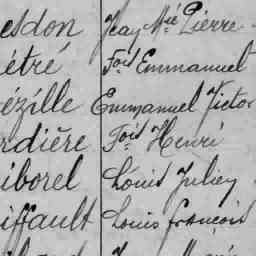 esdon Jean Mie Pierre
étré Fois Emmanuel
ézille Emmanuel Victor
rdière Fois Henri
iborel Louis Julien
iffault Louis françois